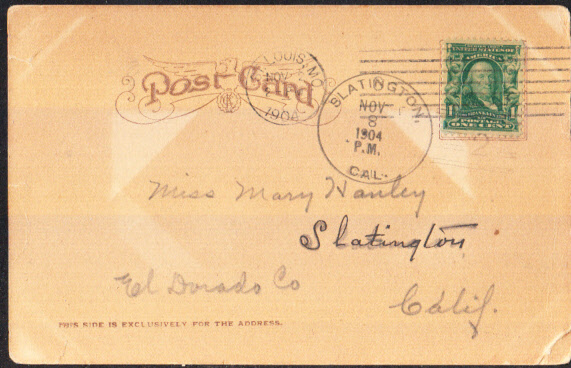 Post Card
LOUIS, MO.
NOV
1904
SLATINGTON,
NOV
8
1904
P.M.
CAL.
1 POSTAGE 1
ONE CENT
Miss Mary Hanley
Slatington
El Dorado Co
Calif.
THIS SIDE IS EXCLUSIVELY FOR THE ADDRESS.